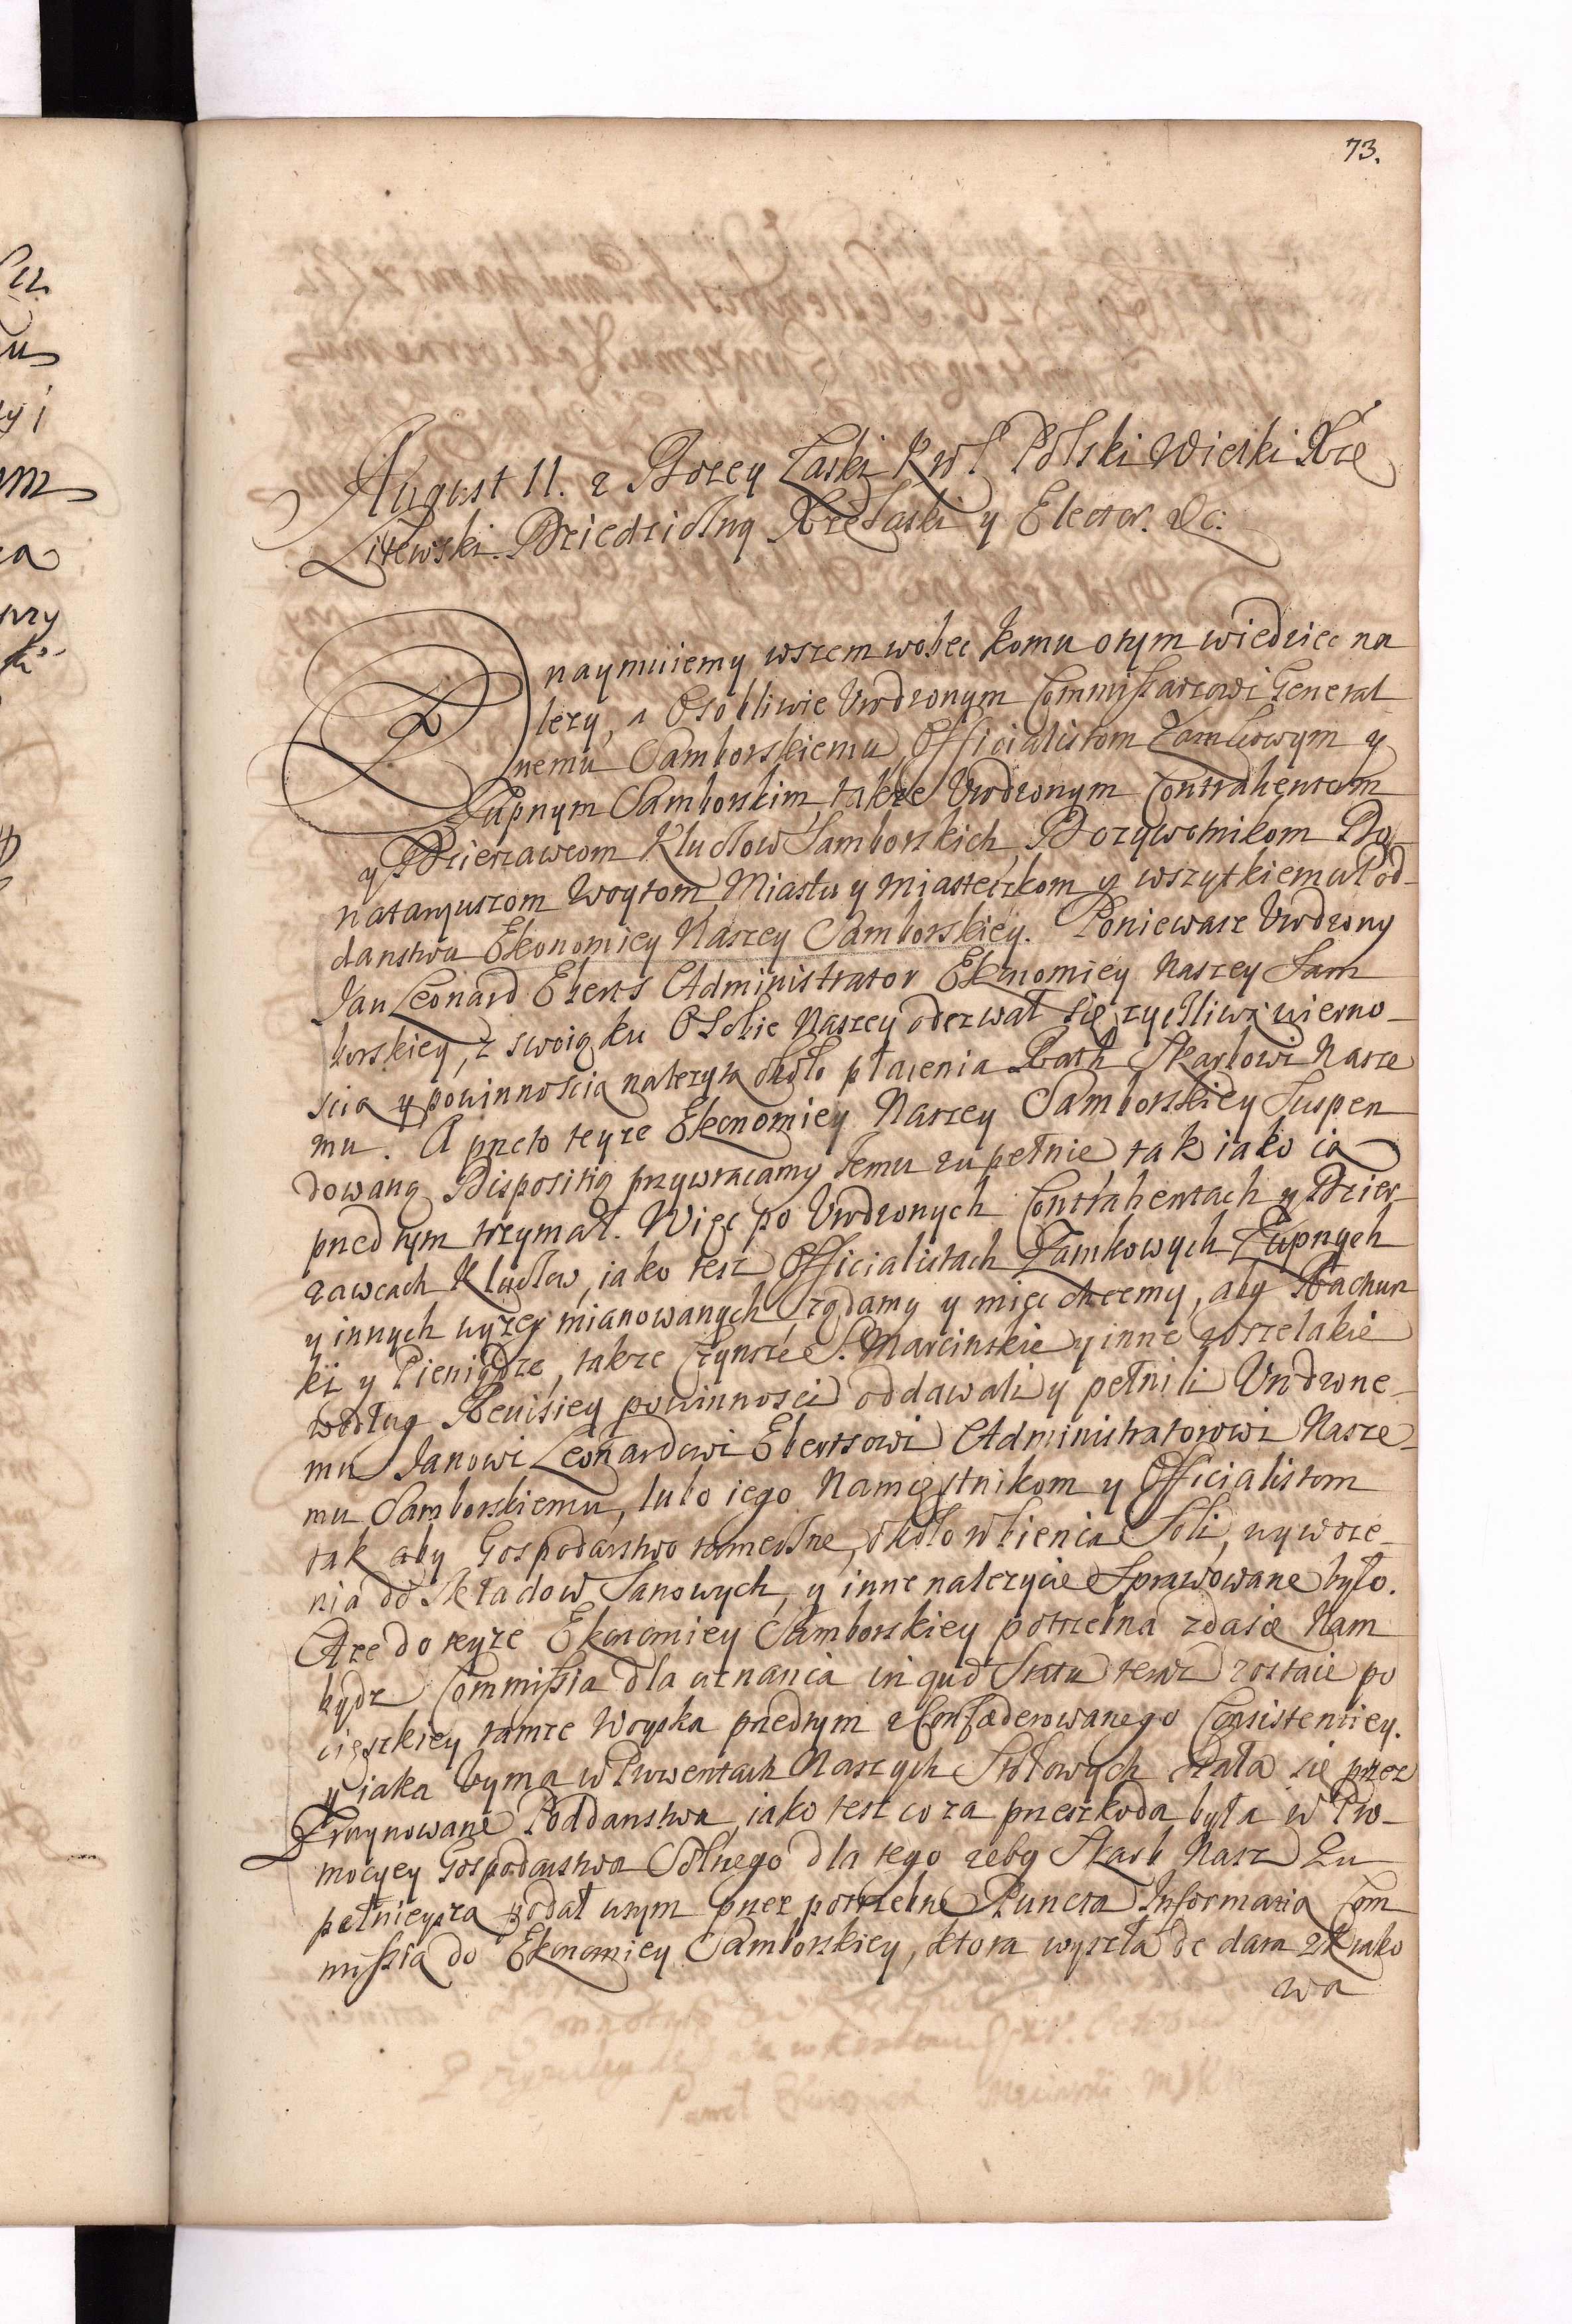 73.
August II. z Bozey Laski Krol Polski Wielki Xze
Litewski Dziedziczny Xze Saski y Elector. &c:
Znaymuiemy wszem wobec komu otym wiedziec na
lezy, a Osobliwie Urodzonym Commissarzowi General
nemu Samborskiemu, Officialistom Zamkowym y
Zupnym Samborskim, takze Urodzonym Contrahentom
y Dzierzawcom Kluczow Samborskich, Dozywotnikom Do
nataryuszom Woytom Miastu y Miasteczkom y wszytkiemu Pod-
danstwu Ekonomiey Naszey Samborskiey. Poniewasz Urodzony
Jan Leonard Eberts Administrator Ekonomiey Naszey Sam
borskiey, z swoią ku Osobie Naszey oderwał się zyczliwą wierno-
scią y powinnoscią nalezytą około płacenia Rath Skarbowi Nasze
mu. A przeto teyze Ekonomiey Naszey Samborskiey Suspen
dowaną Dispositią przywracamy Jemu zupełnie, tak iako ią
przed tym trzymał. Więc po Urodzonych Contrahentach y Dzier-
zawcach Kluczow, iako tesz Officialistach Zamkowych Zupnych
y innych wyzey mianowanych ządamy y miec chcemy, aby Rachun
ki y Pieniądze, takze Czynsze S. Marcinskie y inne wszelakie
według Rewisiey powinnosci oddawali y pełnili Urodzone-
mu Janowi Leonardowi Ebertsowi Administratorowi Nasze-
mu Samborskiemu, lubo iego Namięstnikom y Officialistom
tak aby Gospodarstwo tameczne, około wbienia Soli, wywoze-
nia do Składow Sanowych, y inne nalezycie Sprawowane było.
A ze do teyze Ekonomiey Samborskiey potrzebna zdasię Nam
bydz Commissia dla uznania in quo Statu teraz zostaie po
cięzkiey tamze Woyska przedtym zConfœderowanego Consistentiey.
y iaka Uyma w Prowentach Naszych Stołowych stała się przez
Zruynowane Poddanstwa, iako tesz co za przeszkoda była w Pro-
mocyey Gospodarstwa Solnego dla tego zeby Skarb Nasz Zu
pełnieysza podał wtym przez potrzebne Puncta Informatia Com
missia do Ekonomiey Samborskiey, ktora wyszła de data z Krako
wa